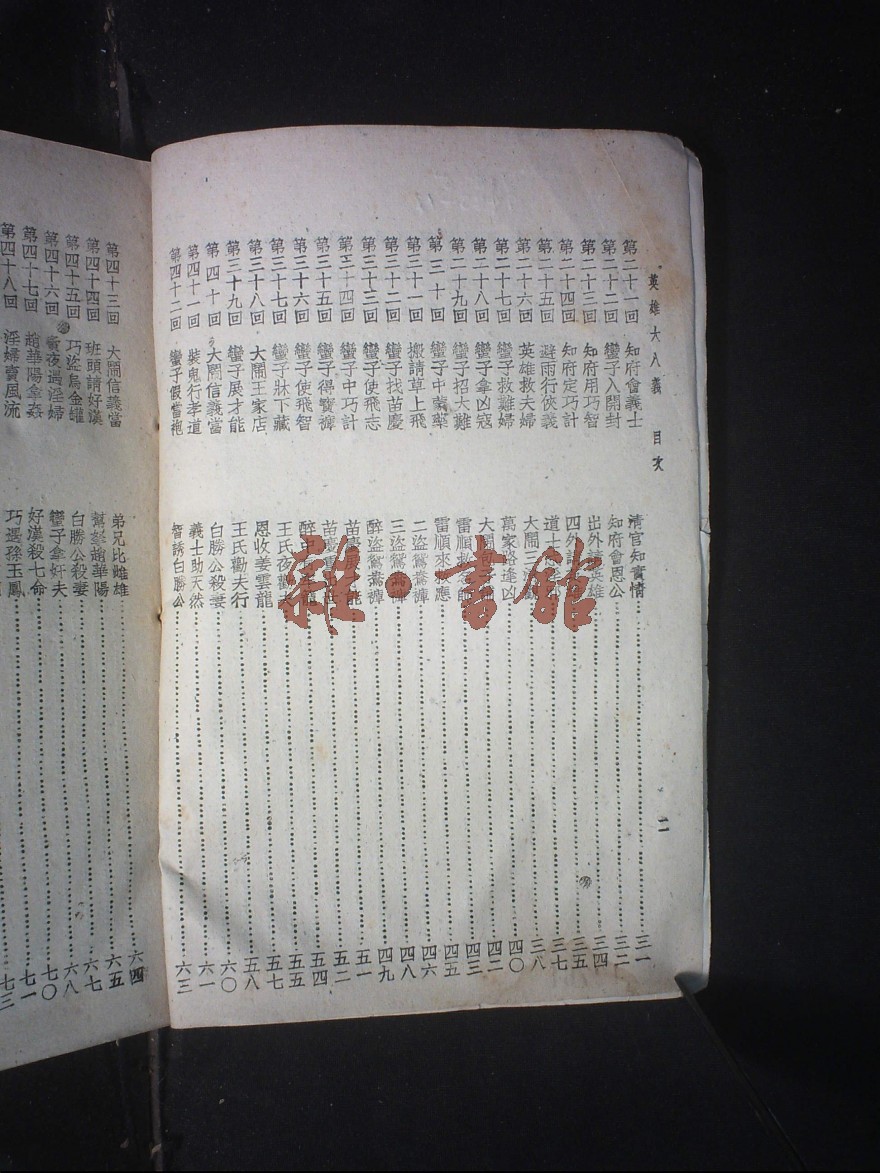 英雄大八義 目次 二
第二十一回 知府會義士 清官知實情 三一
第二十二回 蠻子入開封 知府會恩公 三二
第二十三回 知府用巧智 出外請英雄 三四
第二十四回 知府定巧計 四外 三五
第二十五回 避雨行俠義 道士 三七
第二十六回 英雄救夫婦 大鬧三 三八
第二十七回 蠻子救難婦 萬家路逢凶 四〇
第二十八回 蠻子拿凶寇 大鬧 四二
第二十九回 蠻子招大難 雷順 四三
第三十回 蠻子中蒙藥 雷順來 應 四五
第三十一回 搬請草上飛 二盜鴛鴦褲 四六
第三十二回 蠻子找苗慶 三盜鴛鴦褲 四八
第三十三回 蠻子使飛志 醉盜鴛鴦褲 四九
第三十四回 蠻子中巧計 苗慶 能 五一
第三十五回 蠻子得寶褲 苗慶 五二
第三十六回 蠻子使飛智 醉中 五四
第三十七回 蠻子牀下藏 王氏夜 五五
第三十八回 大鬧王家店 恩收姜雲龍 五七
第三十九回 蠻子展才能 王氏勸夫行 五八
第四十回 大鬧信義當 白勝公殺妻 六〇
第四十一回 裝鬼行孝道 義士助天然 六一
第四十二回 蠻子假當袍 智誘白勝公 六三
第四十三回 大鬧信義當 弟兄比雌雄 六四
第四十四回 班頭請好漢 幫趙華陽 六五
第四十五回 巧盜烏金罐 白勝公殺妻 六七
第四十六回 夜遇淫婦 蠻子拿奸夫 六八
第四十七回 趙華陽拿姦 好漢殺七命 七〇
第四十八回 淫婦賣風流 巧遇孫玉鳳 七一
七三
雜·書館